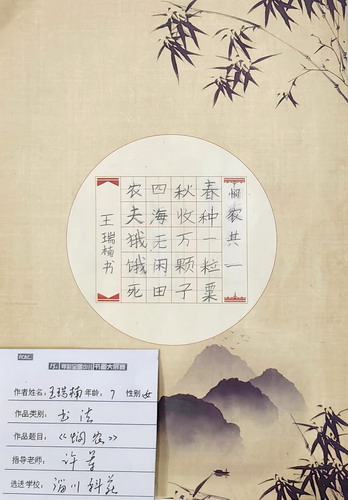 悯农其一
春种一粒粟
秋收万颗子
四海无闲田
农夫犹饿死
王瑞楠书
作者姓名:王瑞楠 年龄:7 性别 女
作品类别:书法
作品题目:《悯农》
指导老师:许
选送学校:淄川科苑